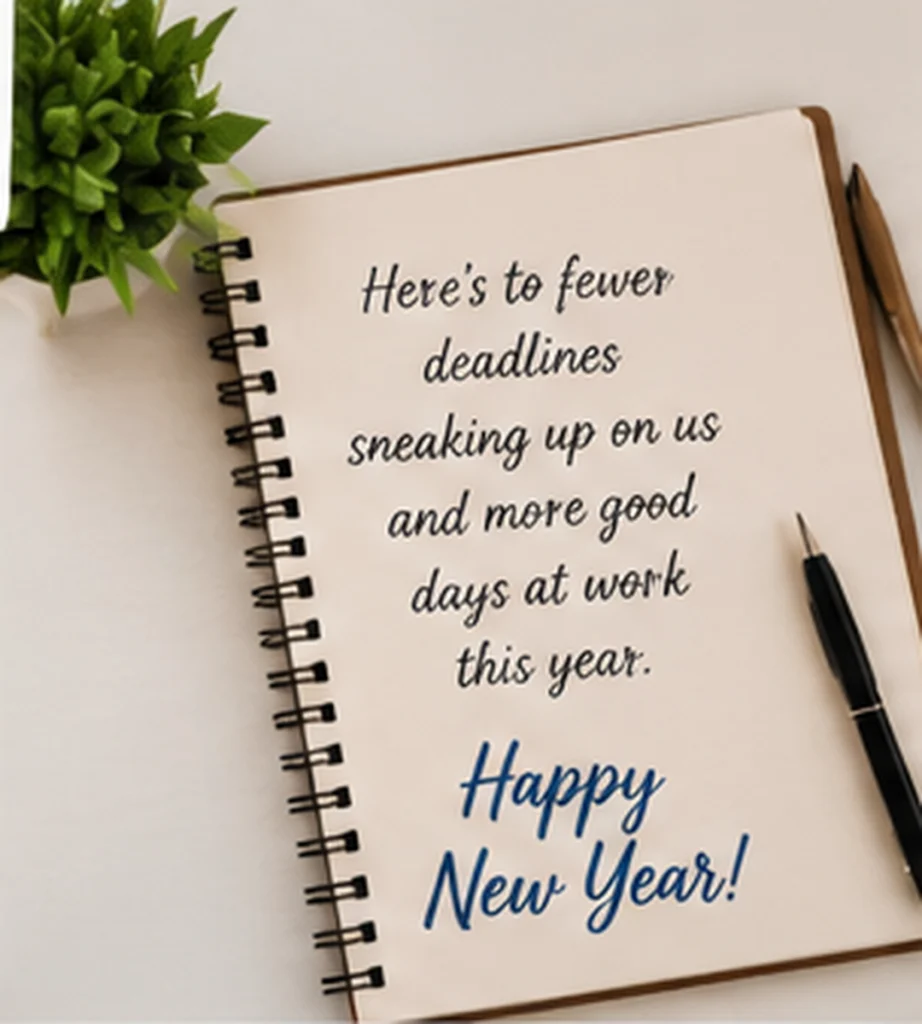 Here's to fewer
deadlines
sneaking up on us
and more good
days at work
this year.
Happy
New Year!